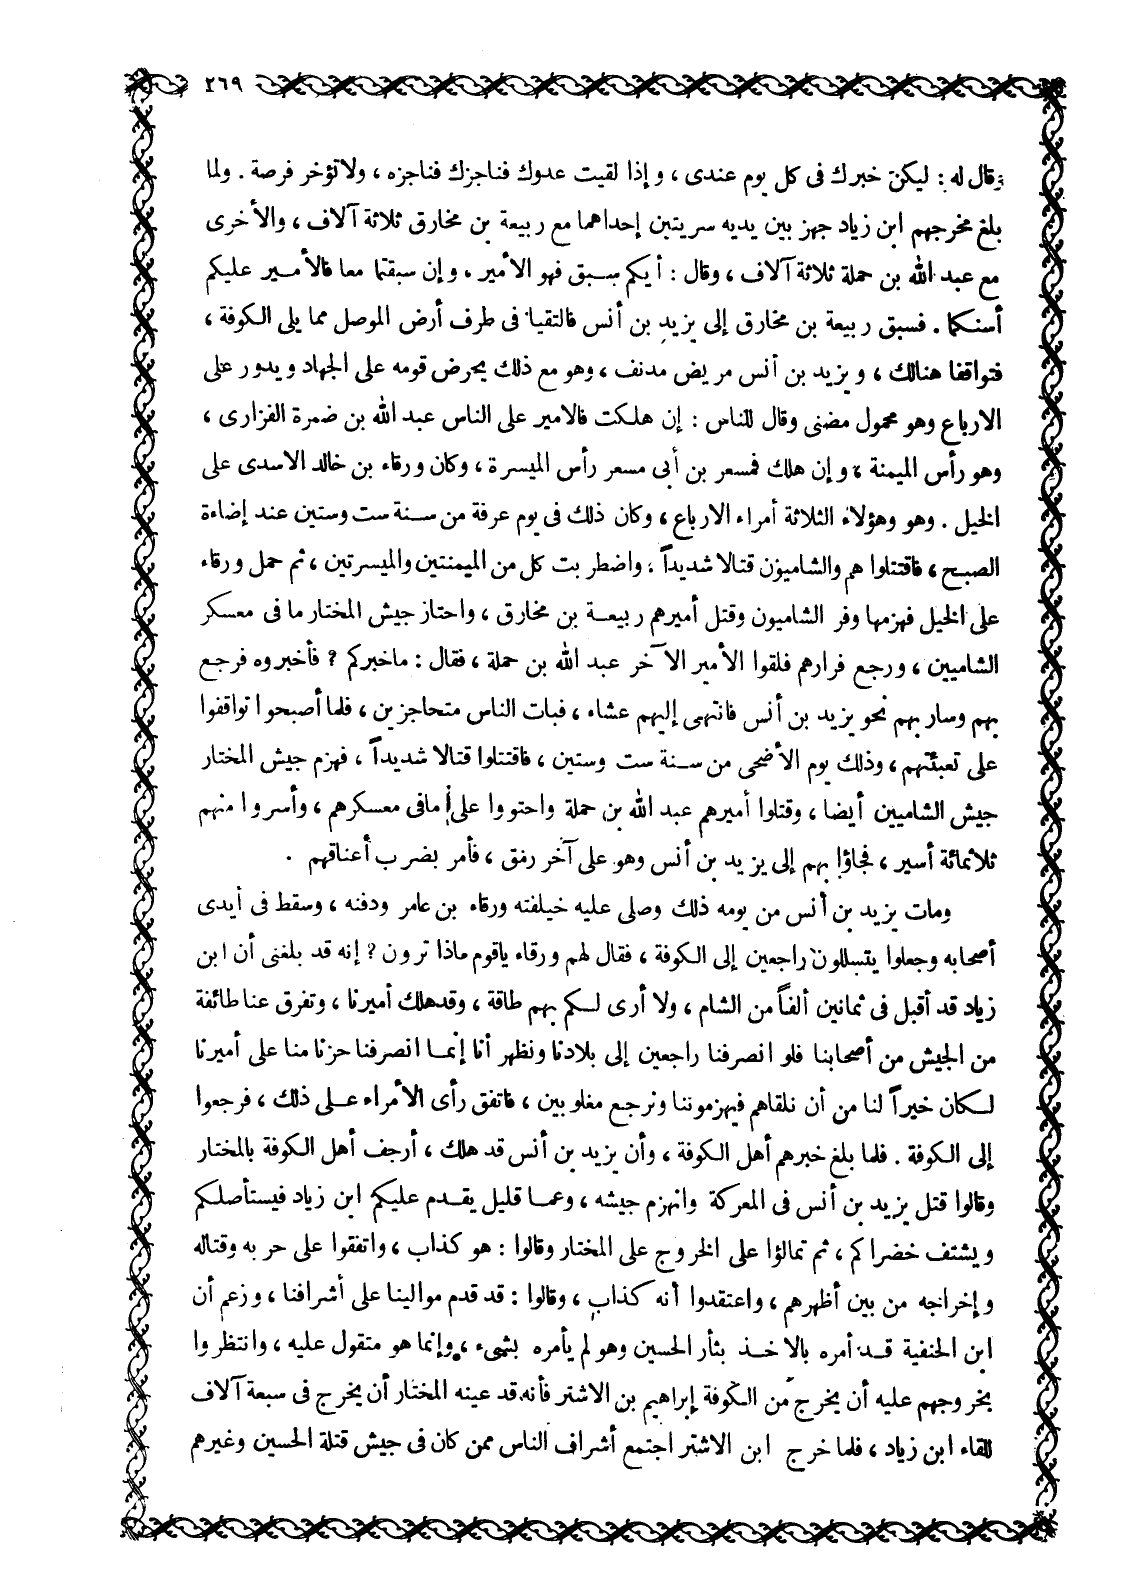 ٢٦٩
وقال له : ليكن خبرك فى كل يوم عندى ، وإذا لقيت عدوك فناجزك فناجزه ، ولاتؤخر فرصة . ولما
بلغ مخرجهم ابن زياد جهز بين يديه سريتين إحداهما مع ربيعة بن مخارق ثلاثة آلاف ، والأخرى
مع عبد الله بن حملة ثلاثة آلاف ، وقال : أيكم سبق فهو الأمير ، وإن سبقتما معا فالأمير عليكم
أسنكما . فسبق ربيعة بن مخارق إلى يزيد بن أنس فالتقيا فى طرف أرض الموصل مما يلى الكوفة ،
فتواقفا هنالك ، ويزيد بن أنس مريض مدنف ، وهو مع ذلك يحرض قومه على الجهاد ويدور على
الارباع وهو محمول مضنى وقال للناس : إن هلكت فالامير على الناس عبد الله بن ضمرة الفزارى ،
وهو رأس الميمنة ، وإن هلك فمسعر بن أبى مسعر رأس الميسرة ، وكان ورقاء بن خالد الاسدى على
الخيل . وهو وهؤلاء الثلاثة أمراء الارباع ، وكان ذلك فى يوم عرفة من سنة ست وستين عند إضاءة
الصبح ، فاقتتلوا هم والشاميون قتالا شديداً ، واضطربت كل من الميمنتين والميسرتين ، ثم حمل ورقاء
على الخيل فهزمها وفر الشاميون وقتل أميرهم ربيعة بن مخارق ، واحتاز جيش المختار ما فى معسكر
الشاميين ، ورجع فرارهم فلقوا الأمير الآخر عبد الله بن حملة ، فقال : ماخبركم ؟ فأخبروه فرجع
بهم وسار بهم نحو يزيد بن أنس فانتهى إليهم عشاء ، فبات الناس متحاجزين ، فلما أصبحوا تواقفوا
على تعبئتهم ، وذلك يوم الأضحى من سنة ست وستين ، فاقتتلوا قتالا شديداً ، فهزم جيش المختار
جيش الشاميين أيضا ، وقتلوا أميرهم عبد الله بن حملة واحتووا على مافى معسكرهم ، وأسروا منهم
ثلاثمائة أسير ، فجاؤا بهم إلى يزيد بن أنس وهو على آخر رمق ، فأمر بضرب أعناقهم .
ومات يزيد بن أنس من يومه ذلك وصلى عليه خيلفته ورقاء بن عامر ودفنه ، وسقط فى أيدى
أصحابه وجعلوا يتسللون راجعين إلى الكوفة ، فقال لهم ورقاء ياقوم ماذا ترون ؟ إنه قد بلغنى أن ابن
زياد قد أقبل فى ثمانين ألفاً من الشام ، ولا أرى لكم بهم طاقة ، وقدهلك أميرنا ، وتفرق عنا طائفة
من الجيش من أصحابنا فلو انصرفنا راجعين إلى بلادنا ونظهر أنا إنما انصرفنا حزنا منا على أميرنا
لكان خيراً لنا من أن نلقاهم فيهزموننا ونرجع مغلوبين ، فاتفق رأى الأمراء على ذلك ، فرجعوا
إلى الكوفة . فلما بلغ خبرهم أهل الكوفة ، وأن يزيد بن أنس قد هلك ، أرجف أهل الكوفة بالمختار
وقالوا قتل يزيد بن أنس فى المعركة وانهزم جيشه ، وعما قليل يقدم عليكم ابن زياد فيستأصلكم
ويشتف خضراكم ، ثم تمالؤا على الخروج على المختار وقالوا : هو كذاب ، واتفقوا على حربه وقتاله
وإخراجه من بين أظهرهم ، واعتقدوا أنه كذاب ، وقالوا : قد قدم موالينا على أشرافنا ، وزعم أن
ابن الحنفية قد أمره بالاخذ بثأر الحسين وهو لم يأمره بشىء ، وإنما هو متقول عليه ، وانتظروا
بخروجهم عليه أن يخرج من الكوفة إبراهيم بن الاشتر فأنه قد عينه المختار أن يخرج فى سبعة آلاف
للقاء ابن زياد ، فلما خرج ابن الاشتر اجتمع أشراف الناس ممن كان فى جيش قتلة الحسين وغيرهم